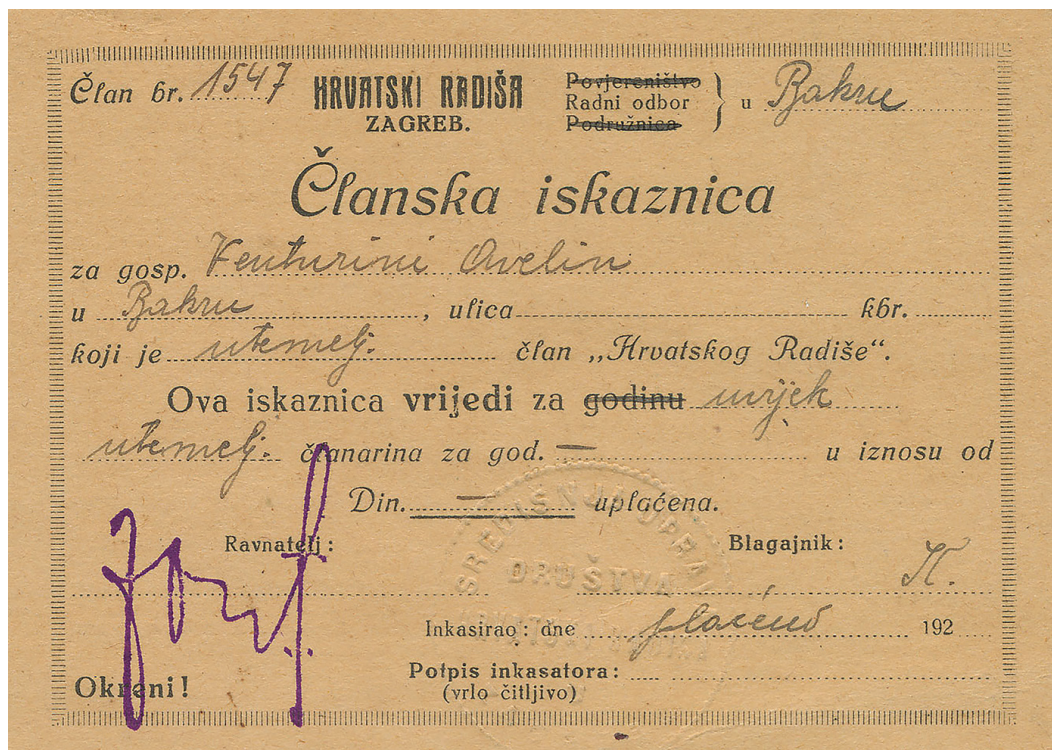 Član br. 1547 HRVATSKI RADIŠA ZAGREB. Povjereništvo Radni odbor Podružnica } u Bakru
Članska iskaznica
za gosp. Venturini Avelin
u Bakru, ulica kbr.
koji je utemelj. član „Hrvatskog Radiše“.
Ova iskaznica vrijedi za godinu uvijek
utemelj. članarina za god. — u iznosu od
Din. — uplaćena.
Ravnatelj: Blagajnik:
K.
Inkasirao: dne plaćeno 192
Potpis inkasatora:
(vrlo čitljivo)
Okreni!
SREDIŠNJA UPRAVA
DRUŠTVA